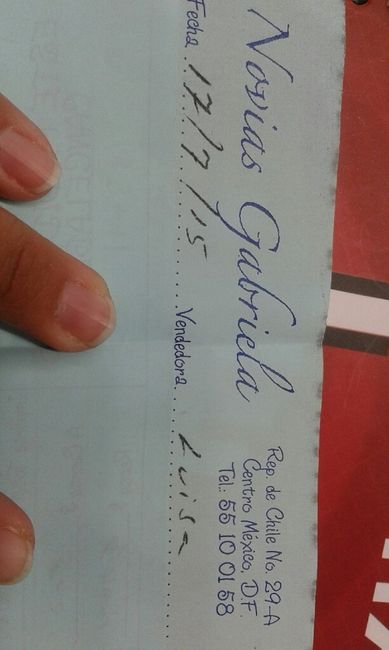 Novias Gabriela
Rep. de Chile No. 29-A
Centro México, D.F.
Tel.: 55 10 01 58
Fecha 17/7/15 Vendedora Luisa